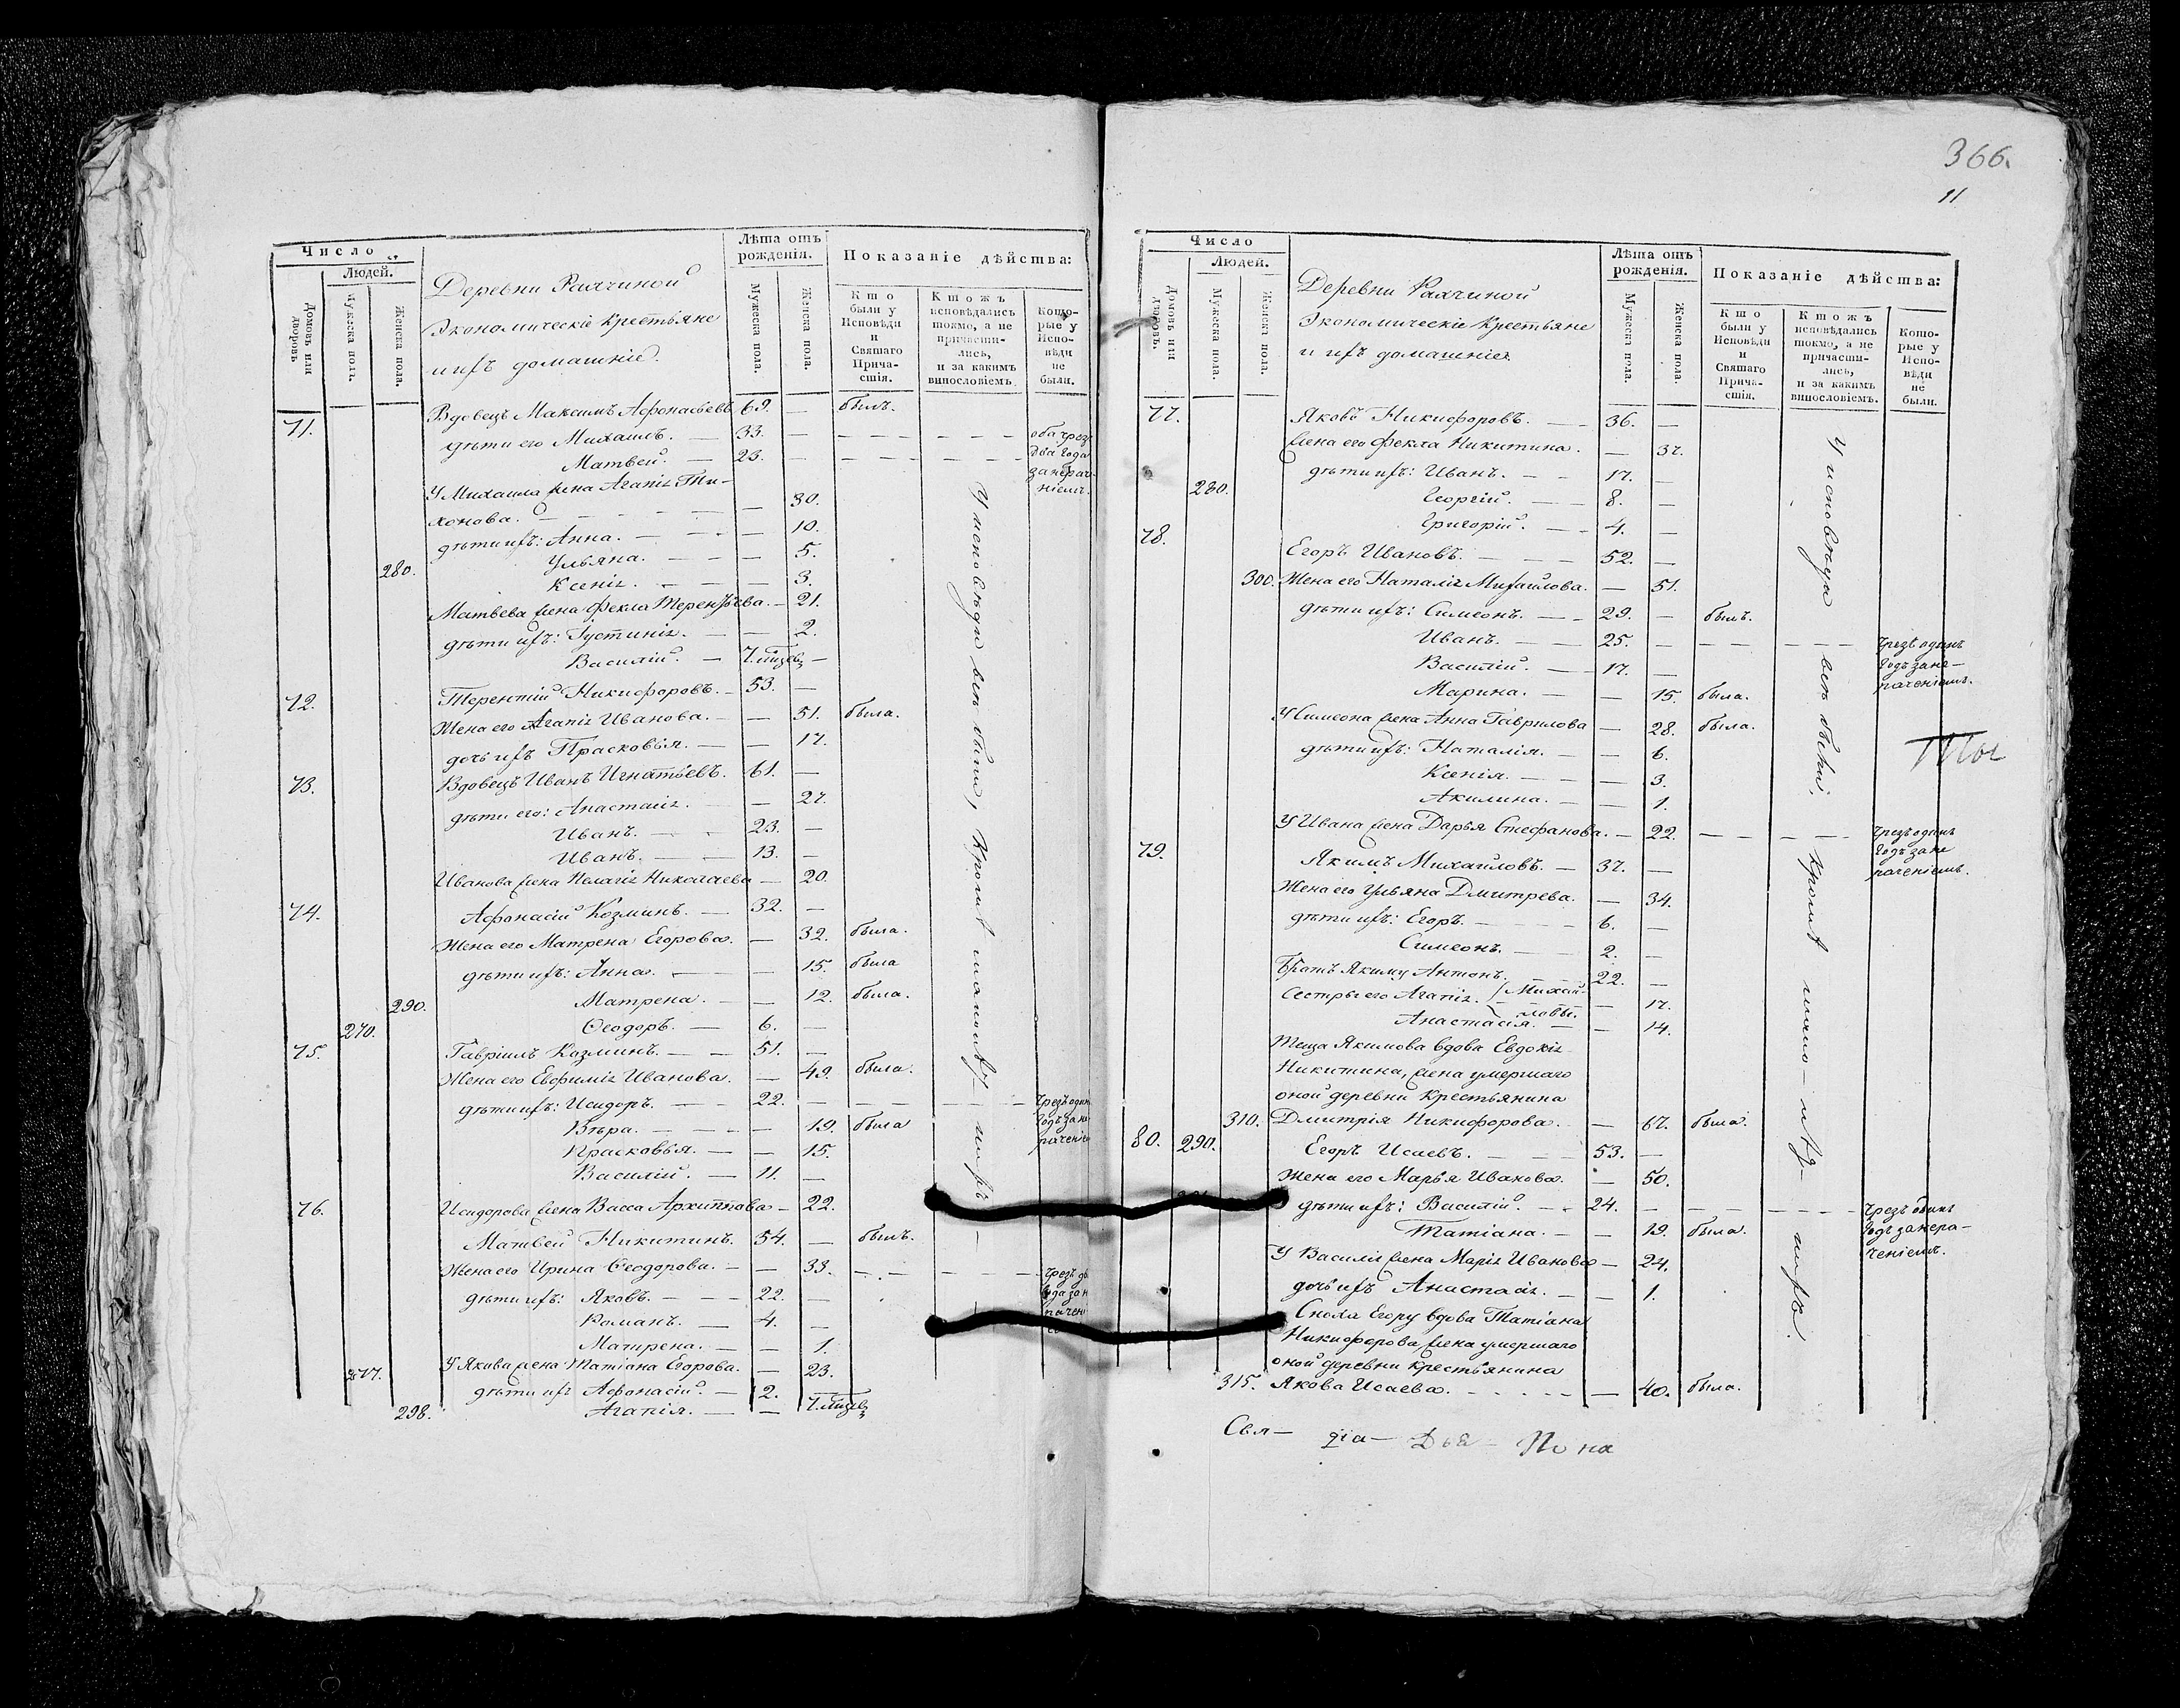 Число
Людей.
Домовъ или дворовъ
Мужеска полъ.
Женска пола.
Деревни
Экономическіе Крестьяне
и ихъ домашніе.
Лѣта отъ рожденія.
Мужеска пола.
Женска пола.
Показаніе дѣйства:
Кто были у Исповѣди и Святаго Причастія.
Ктожъ исповѣдались токмо, а не причастились, и за какимъ винословіемъ.
Которые у Исповѣди не были.
71. Вдовецъ Максимъ Афонасьевъ 69. — былъ.
дѣти его Михаилъ. — 33. — — — — — оба чрез
Матвей. — 23. — — — — два года
за нерач-
У Михаила жена Агапія Ти- ніемъ.
хонова. — — — 30.
дѣти ихъ: Анна. — — 10.
Ульяна. — — 5.
280. Ксенія. — — 3.
Матвева жена Фекла Терентьева. — 21.
дѣти ихъ: Густинія. — — 2.
Василій. — 7. мцсвъ —
72. Терентій Никифоровъ. — 53. —
Жена его Агапія Иванова. — — 51. была.
дочь ихъ Прасковья. — — 17.
73. Вдовецъ Иванъ Игнатьевъ. 61. —
дѣти его: Анастасія. — — 27.
Иванъ. — 23. —
Иванъ. — 13. —
Иванова жена Пелагія Николаева — 20.
74. Афонасій Козминъ. — 32. —
Жена его Матрена Егорова. — 32. была.
дѣти ихъ: Анна. — — 15. была
290. Матрена. — — 12. была.
270. Ѳеодоръ. — 6. —
75. Гавріилъ Козминъ. — — 51. —
Жена его Евфимія Иванова. — 49. была.
дѣти ихъ: Исидоръ. — — 22. — — — — чрезъ один
Вѣра. — — 19. была годъ за не
Прасковья. — — 15. раченіе
Василій. — 11. —
Исидорова жена Васса Архиппова — 22.
76. Матвей Никитинъ. 54. — былъ.
Жена его Ирина Ѳеодорова. — — 33. — — — чрезъ дв
дѣти ихъ: Яковъ. — — 22. — года за н
Романъ. — 4. — рачені
Матрена. — — 1.
У Якова жена Татіана Егорова. — 23.
277. дѣти ихъ Афонасій. — 2. —
298. Агапія. — — 7. мцсвъ
У исповѣди всѣ были, кромѣ шапо ихъ
366.
11
Число
Людей.
Домовъ или дворовъ.
Мужеска пола.
Женска пола.
Деревни
Экономическіе Крестьяне
и ихъ домашніе.
Лѣта отъ рожденія.
Мужеска пола.
Женска пола.
Показаніе дѣйства:
Кто были у Исповѣди и Святаго Причастія.
Ктожъ исповѣдались токмо, а не причастились, и за какимъ винословіемъ.
Которые у Исповѣди не были.
77. Яковъ Никифоровъ. — 36. —
Жена его Фекла Никитина. — 37.
дѣти ихъ: Иванъ. — — 17. —
280. Георгій. — 8. —
Григорій. — 4. —
78. Егоръ Ивановъ. — — 52. —
300. Жена его Наталія Михайлова. — 51.
дѣти ихъ: Симеонъ. — — 29. — былъ.
Иванъ. — 25. — — — — чрезъ одинъ
Василій. — 17. — годъ за не-
Марина. — — 15. была. раченіемъ.
У Симеона жена Анна Гаврилова — 28. была.
дѣти ихъ: Наталія. — — 6.
Ксенія. — — 3.
Акилина. — — 1.
У Ивана жена Дарья Стефанова. — 22. — — — чрезъ одинъ
79. Якимъ Михайловъ. — 37. — годъ за не
раченіемъ.
Жена его Ульяна Дмитрева. — 34.
дѣти ихъ: Егоръ. — — 6. —
Симеонъ. — 2. —
Братъ Якиму Антонъ. — 22. —
Сестры его Агапія. Михай- — 17.
Анастасія. ловы. — 14.
Теща Якимова вдова Евдокія
Никитина, жена умершаго
оной деревни Крестьянина
310. Дмитрія Никифорова. — 67. была.
80. 290. Егоръ Исаевъ. — — 53. —
Жена его Марья Иванова. — 50.
дѣти ихъ: Василій. — — 24. — — — — чрезъ одинъ
Татіана. — — 19. была. годъ за нера-
У Василія жена Марія Иванова — 24. ченіемъ.
дочь ихъ Анастасія. — — 1.
Сноха Егору вдова Татіана
Никифорова, жена умершаго
оной деревни крестьянина
315. Якова Исаева. — — — 40. была.
У исповѣда всѣ были, кромѣ ихъ.
Свя— ція— Двѣ— По на